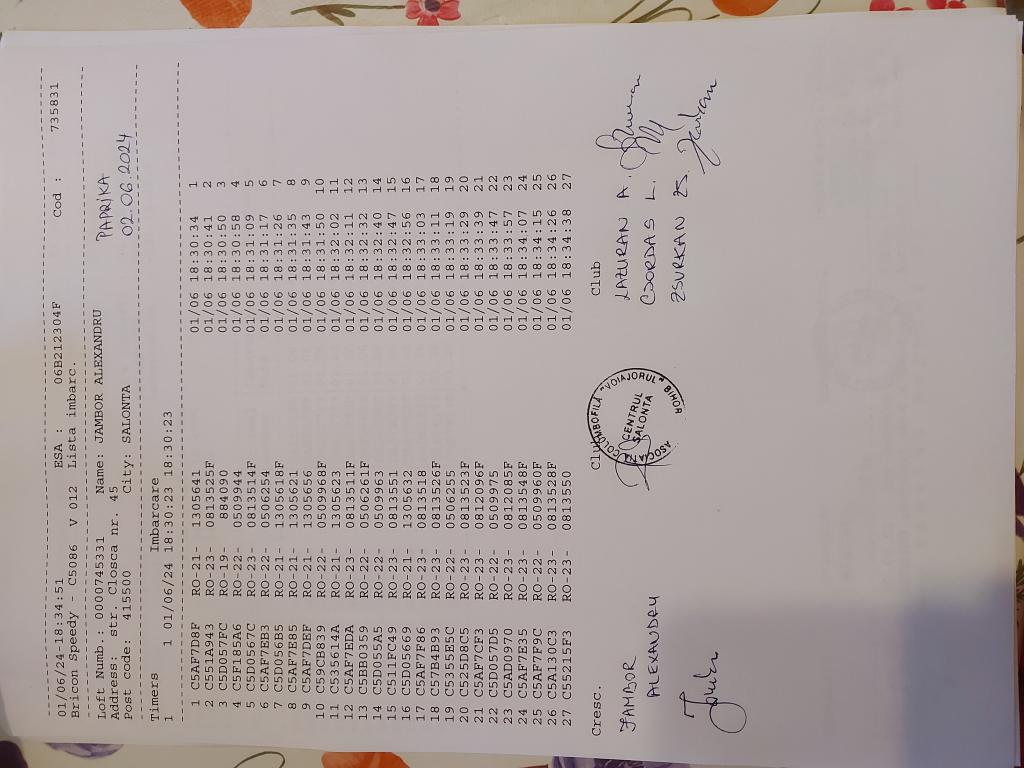 01/06/24-18:34:51 ESA : 06B212304F Cod : 735831
Bricon Speedy - C5086 V 012 Lista imbarc.
Loft Numb.: 0000745331 Name: JAMBOR ALEXANDRU PAPRIKA
Address: str. Closca nr. 45 02.06.2024
Post code: 415500 City: SALONTA
Timers Imbarcare
1 1 01/06/24 18:30:23 18:30:23
1 C5AF7D8F RO-21- 1305641 01/06 18:30:34 1
2 C551A943 RO-23- 0813525F 01/06 18:30:41 2
3 C5D057FC RO-19- 884090 01/06 18:30:50 3
4 C5F185A6 RO-22- 0509944 01/06 18:30:58 4
5 C5D0567C RO-23- 0813514F 01/06 18:31:09 5
6 C5AF7EB3 RO-22- 0506254 01/06 18:31:17 6
7 C5D056B5 RO-21- 1305618F 01/06 18:31:26 7
8 C5AF7E85 RO-21- 1305621 01/06 18:31:35 8
9 C5AF7DEF RO-21- 1305656 01/06 18:31:43 9
10 C59CB839 RO-22- 0509968F 01/06 18:31:50 10
11 C535614A RO-21- 1305623 01/06 18:32:02 11
12 C5AF7EDA RO-23- 0813511F 01/06 18:32:11 12
13 C5BB0359 RO-22- 0506261F 01/06 18:32:32 13
14 C5D055A5 RO-22- 0509963 01/06 18:32:40 14
15 C511FC49 RO-23- 0813551 01/06 18:32:47 15
16 C5D05669 RO-21- 1305632 01/06 18:32:56 16
17 C5AF7F86 RO-23- 0813518 01/06 18:33:03 17
18 C57B4B93 RO-23- 0813526F 01/06 18:33:11 18
19 C5355E5C RO-22- 0506255 01/06 18:33:19 19
20 C525D8C5 RO-23- 0813523F 01/06 18:33:29 20
21 C5AF7CF3 RO-23- 0812096F 01/06 18:33:39 21
22 C5D057D5 RO-22- 0509975 01/06 18:33:47 22
23 C5AD0970 RO-23- 0812085F 01/06 18:33:57 23
24 C5AF7E35 RO-23- 0813548F 01/06 18:34:07 24
25 C5AF7F9C RO-22- 0509960F 01/06 18:34:15 25
26 C5A130C3 RO-23- 0813528F 01/06 18:34:26 26
27 C55215F3 RO-23- 0813550 01/06 18:34:38 27
Cresc. Club Club
JAMBOR LAZURAN A.
ALEXANDRU CSORDAS L.
ZSURKAN ZS.
ASOCIATIA COLUMBOFILA "VOIAJORUL" BIHOR
CENTRUL
SALONTA